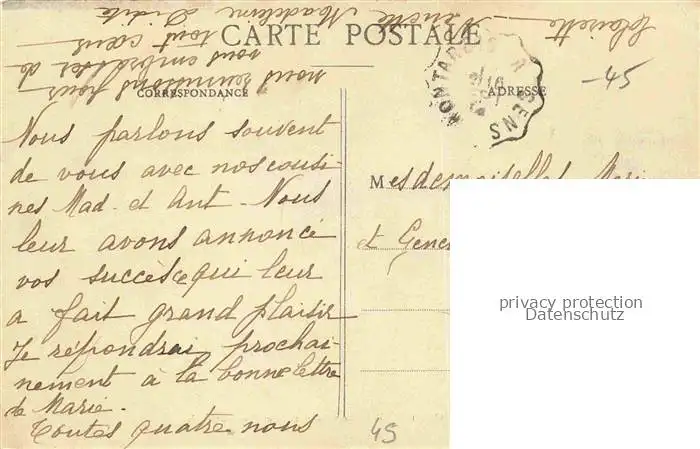 CARTE POSTALE
CORRESPONDANCE
ADRESSE
Nous parlons souvent
de vous avec nos cousi-
nes Mad. et Ant. Nous
leur avons annoncé
vos succès ce qui leur
a fait grand plaisir
Je répondrai prochai-
nement à la bonne lettre
de Marie.
Toutes quatre nous
nous réunissons pour
vous embrasser de
tout cœur
Madeleine
MONTARGIS A SENS
-45
Mesdemoiselles Mari
et Gene
privacy protection
Datenschutz
45